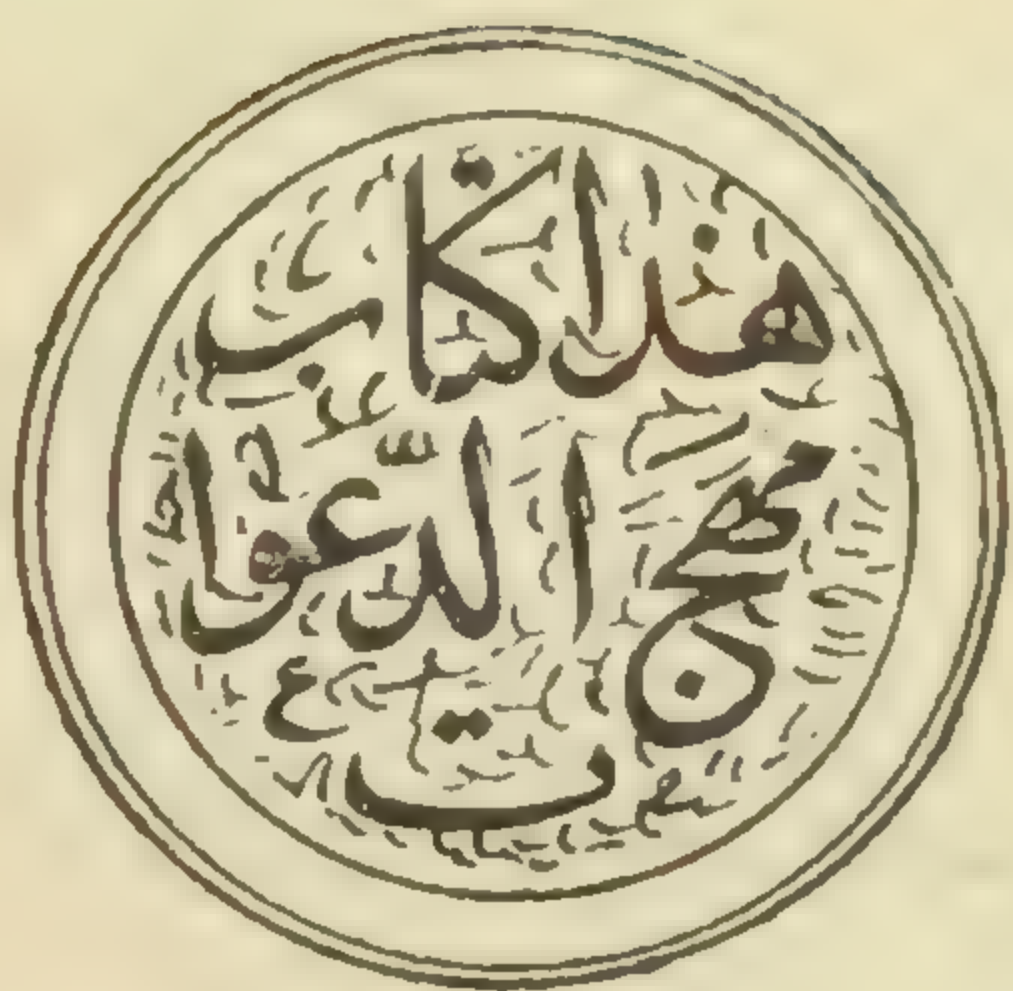 هذا كتاب
مهج الدّعوا
ت